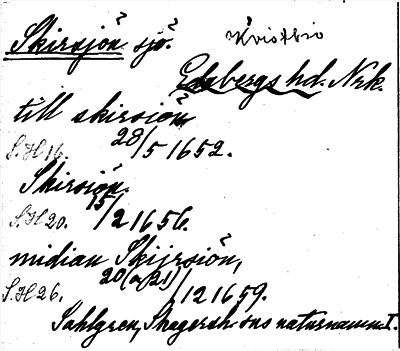 Skirsjön. sjö. Kvistbro
Edsbergs hd. Nrk.
till skirsiön
S.H 16. 28/5 1652.
Skirsiön.
S.H 20. 15/2 1656.
midian Skijrsiön,
S.H 26. 20(a 21)/12 1659.
Sahlgren, Skagersh:ons naturnamn I.